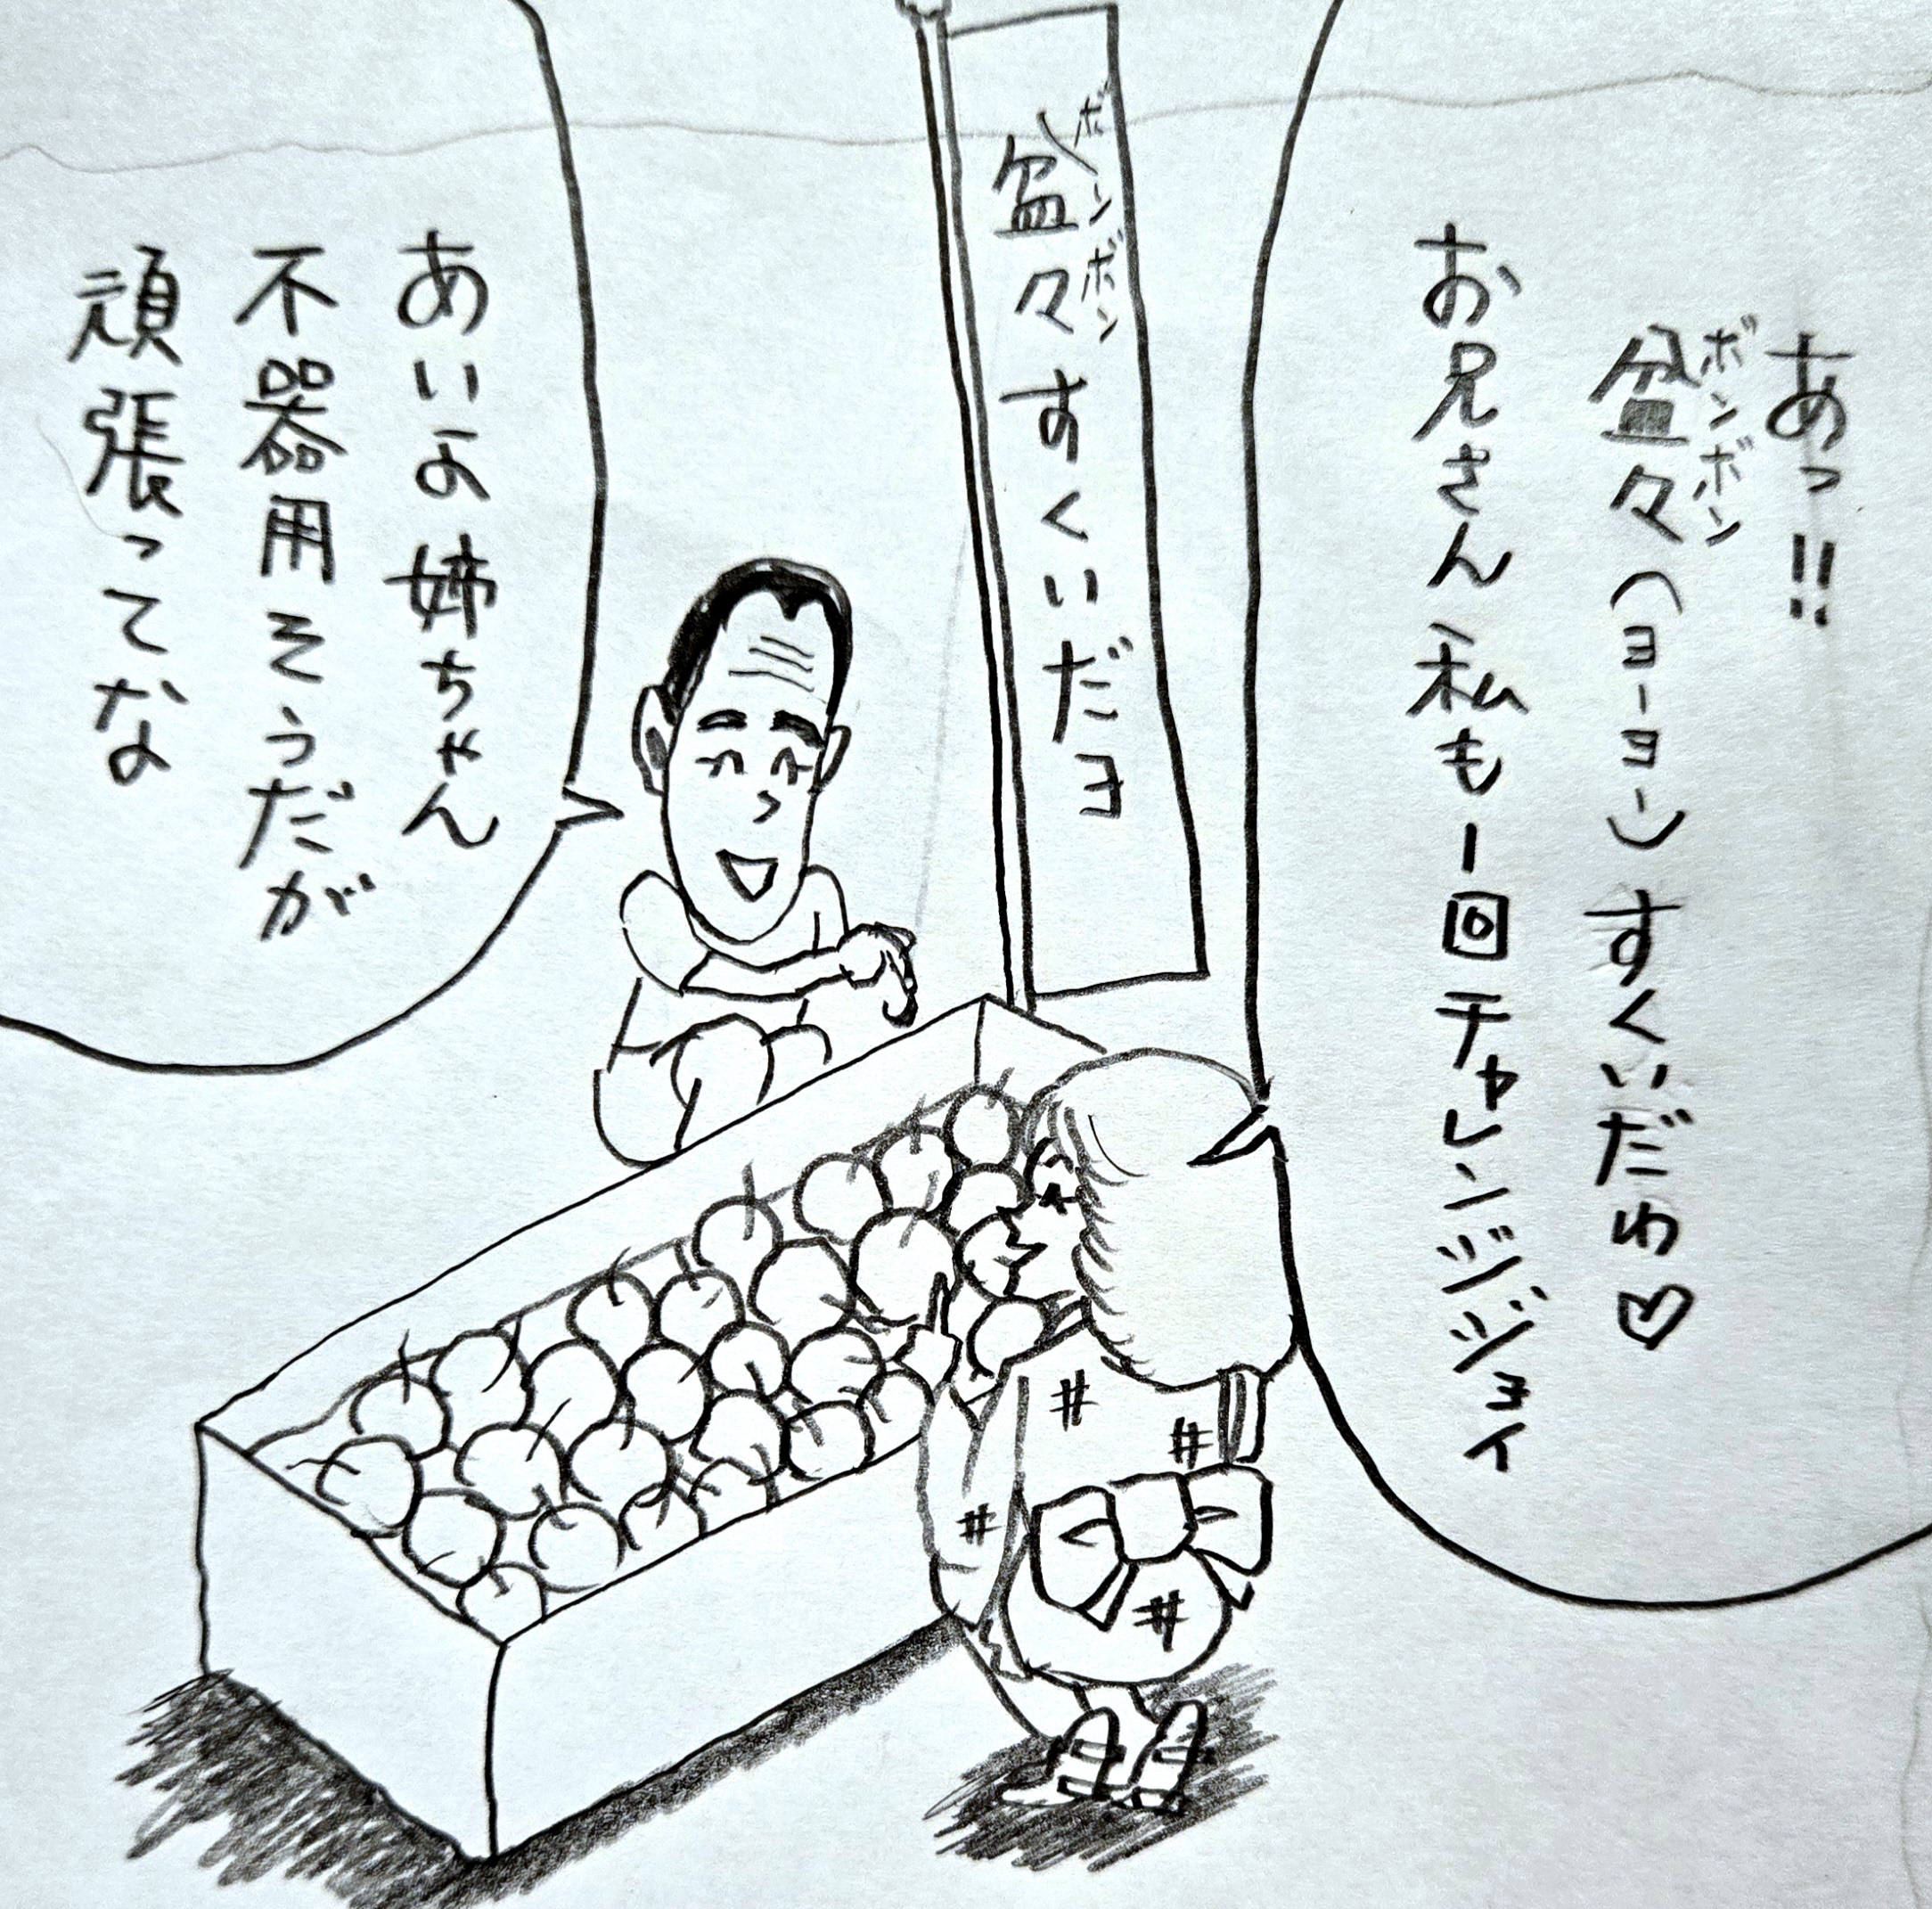 あっ!!
盆々(ヨーヨー)すくいだわ♡
ボンボン
お兄さん私も一回チャレンジジョイ
盆々すくいだヨ
ボンボン
あいよ姉ちゃん
不器用そうだが
頑張ってな